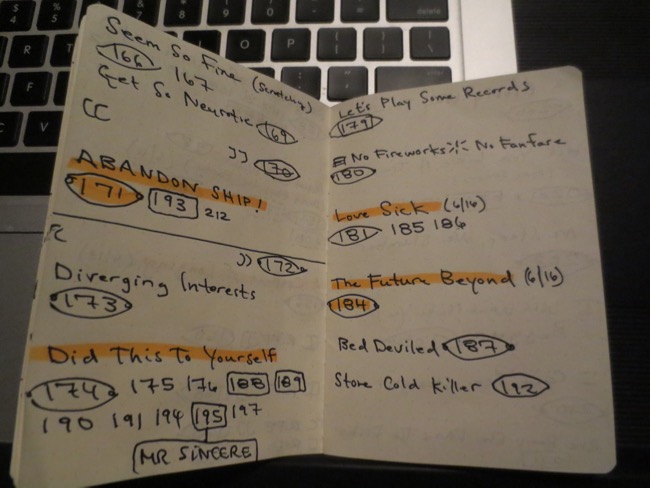 Seem So Fine (Scratching)
166 167
Get So Neurotic 169
CC
)) 170
ABANDON SHIP!
171 193 212
)) 172
Diverging Interests
173
Did This To Yourself
174 175 176 188 189
190 191 194 195 197
MR SINCERE
Let's Play Some Records
179
No Fireworks No Fanfare
180
Love Sick (6/16)
181 185 186
The Future Beyond (6/16)
184
Bed Deviled 187
Stone Cold Killer 192
delete
O P
R T